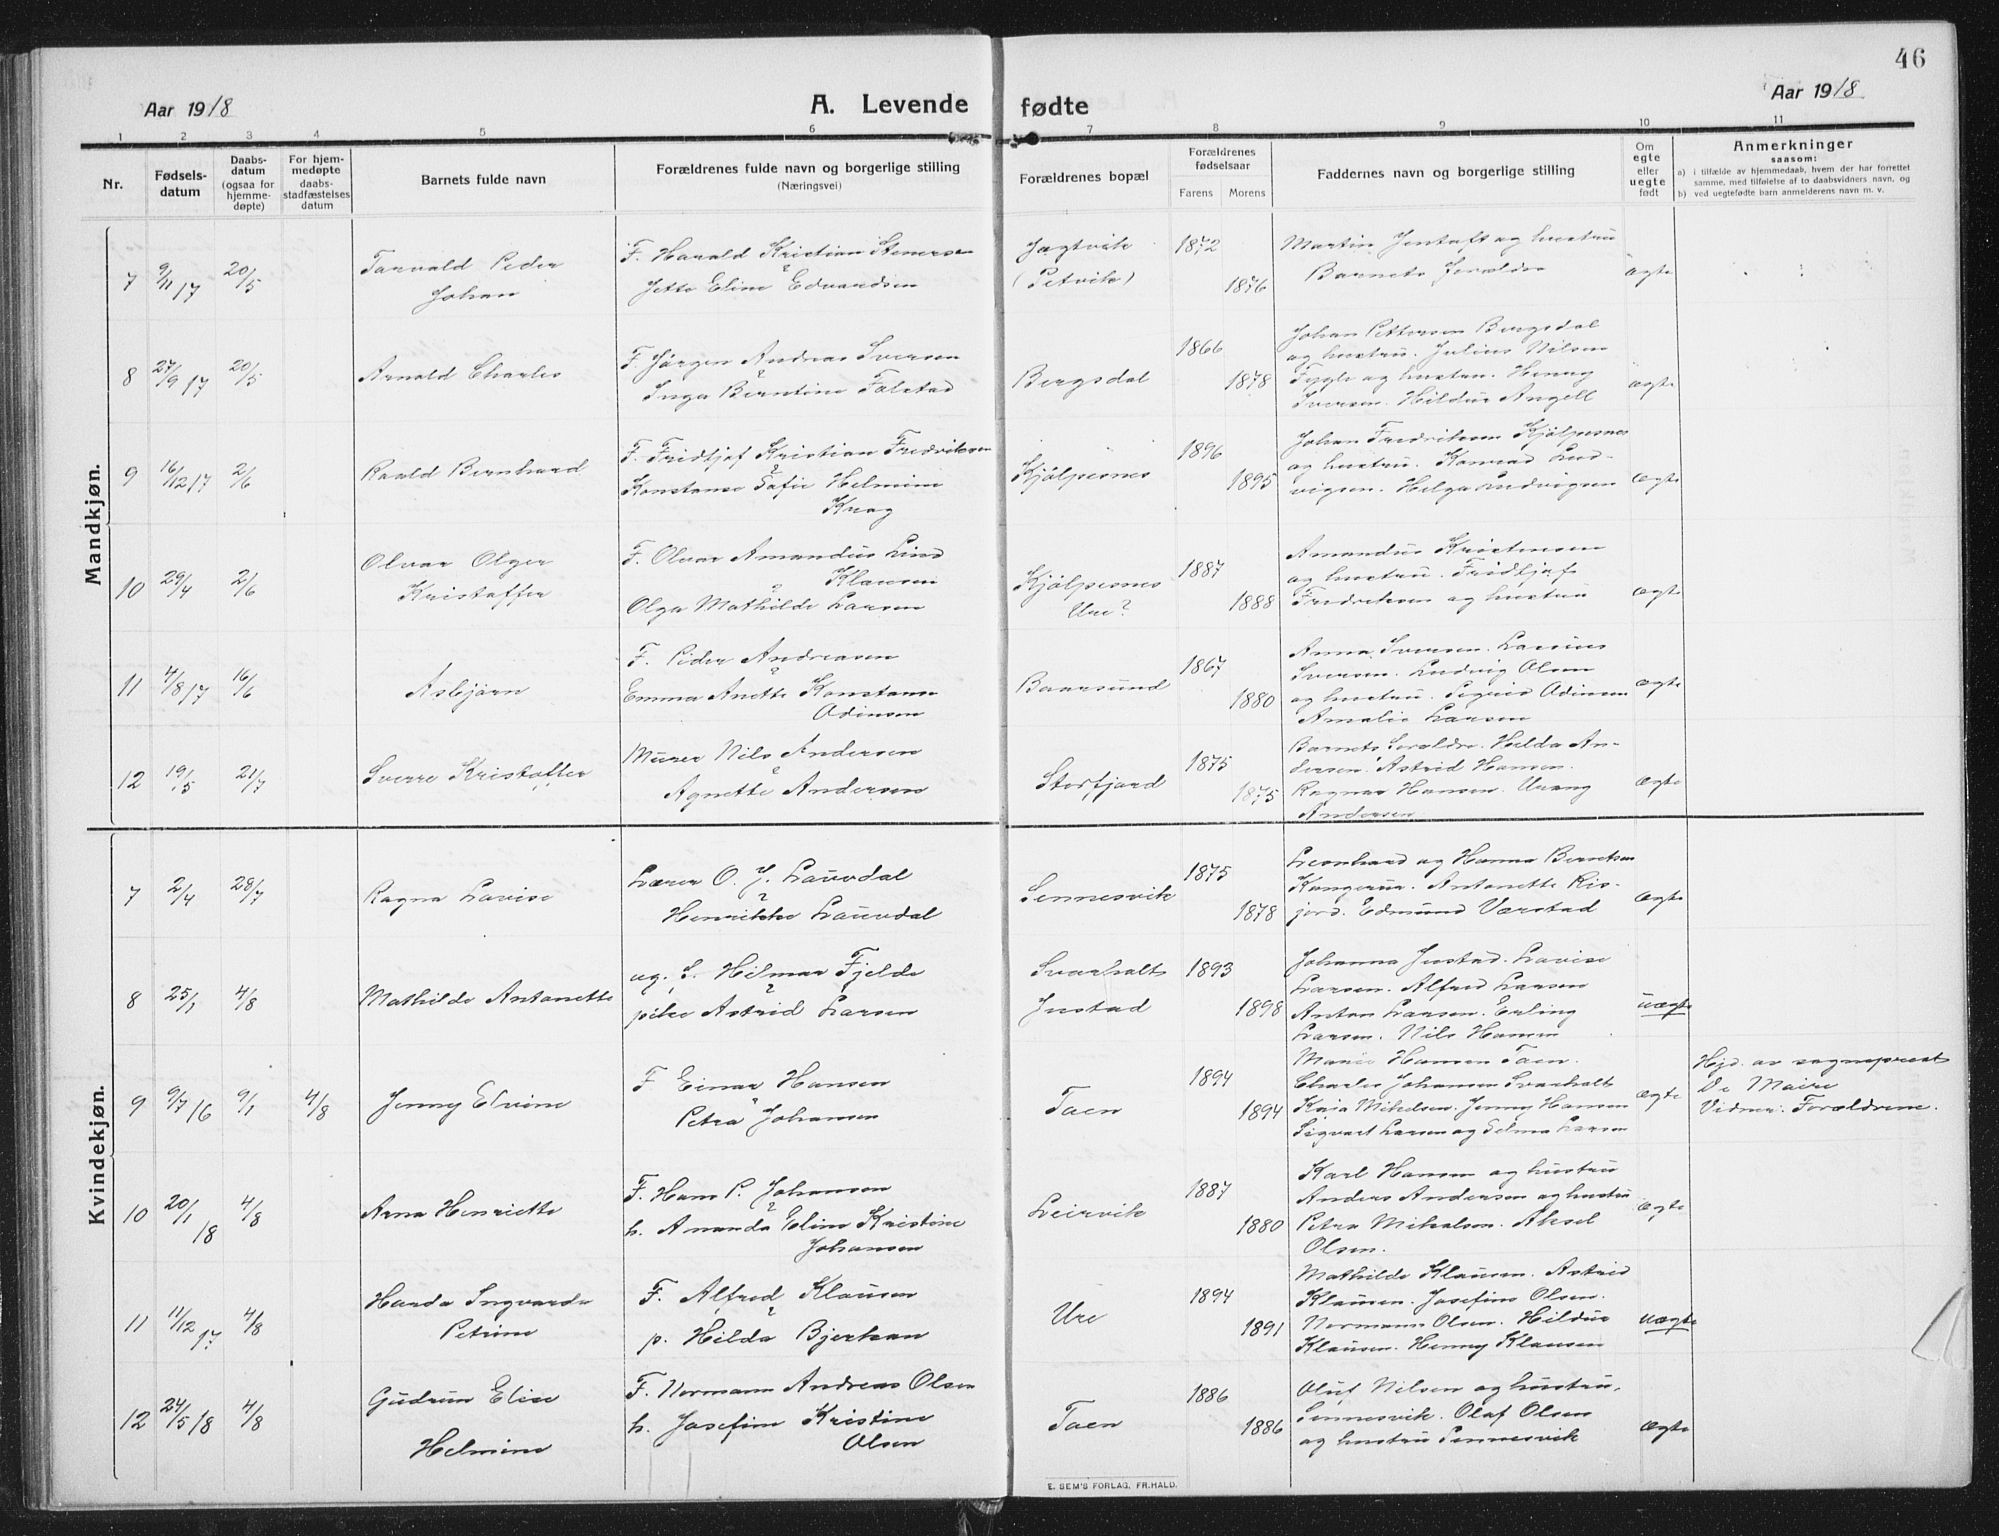 46
Aar 1918
A. Levende fødte
Aar 1918
1 2 3 4 5 6 7 8 9 10 11
Nr.
Fødsels-
datum
Daabs-
datum
(ogsaa for
hjemme-
døpte)
For hjem-
medøpte
daabs-
stadfæstelses
datum
Barnets fulde navn
Forældrenes fulde navn og borgerlige stilling
(Næringsvei)
Forældrenes bopæl
Forældrenes
fødselsaar
Farens Morens
Faddernes navn og borgerlige stilling
Om
egte
eller
uegte
født
Anmerkninger
saasom:
a) i tilfælde av hjemmedaab, hvem der har forrettet
samme, med tilføielse af to daabsvidners navn, og
b) ved uegtefødte barn anmelderens navn m. v.
Mandkjøn.
7 9/11 17 20/5
Torvald Peder
Johan
F. Harald Kristian Stenersen
Jette Eline Edvardsen
Jagtvik
(Petvik)
1872
1876
Martin Justaft og hustru
Barnets forældre
ægte
8 27/9 17 20/5
Arnold Charles
F. Jørgen Andreas Iversen
Inga Berntine Falstad
Bergsdal
1866
1878
Johan Pettersen Bergsdal
og hustru. Julius Nilsen
Fygle og hustru. Henny
Iversen. Hildur Angell
ægte
9 16/12 17 2/6
Roald Bernhard
F. Fridtjof Kristian Fredriksen
Konstanse Sofie Helmine
Knag
Kjølpesnes
1896
1895
Johan Fredriksen Kjølpesnes
og hustru. Konrad Lud-
vigsen. Helga Ludvigsen
ægte
10 29/4 2/6
Olvar Olger
Kristoffer
F. Olvar Amandus Lind
Klausen
Olga Mathilde Larsen
Kjølpesnes
Ure?
1887
1888
Amandus Kristensen
og hustru. Fridtjof
Fredriksen og hustru
ægte
11 4/8 17 16/6
Asbjørn
F. Peder Andreasen
Emma Anette Konstanse
Odinsen
Baarsund
1867
1880
Anna Iversen. Laurits
Iversen. Ludvig Olsen
og hustru. Sigrid Odinsen
Amalie Larsen
ægte
12 19/5 21/7
Sverre Kristoffer
Murer Nils Andersen
Agnette Andersen
Storfjord
1875
1875
Barnets forældre. Hilda An-
dersen. Astrid Hansen.
Ragnar Hansen. Urang
Andersen
ægte
Kvindekjøn.
7 2/4 28/7
Ragna Lovise
Lærer O. J. Lauvdal
Henrikke Lauvdal
Sennesvik
1875
1878
Leonhard og Hanna Berntsen
Kangerur. Antonette Ris-
jord. Edmund Værstad
ægte
8 25/1 4/8
Mathilde Antonette
ug. f. Hilmar Fjelde
pike Astrid Larsen
Svarholt
Justad
1893
1898
Johanna Justad. Lovise
Larsen. Alfred Larsen
Anton Larsen. Erling
Larsen. Nils Hansen
uægte
9 9/7 16 9/1 4/8
Jenny Elvine
F Einar Hansen
Petra Johansen
Taen
1894
1894
Marie Hansen Taen.
Charles Johansen Svarholt
Kaja Mikelsen. Jenny Hansen
Sigvart Larsen og Selma Larsen
ægte
Hjd. av sogneprest
De Maire
Vidner: Forældrene.
10 20/1 18 4/8
Arna Henriette
F. Hans P. Johansen
h. Amanda Eline Kristine
Johansen
Leirvik
1887
1880
Karl Hansen og hustru
Anders Andersen og hustru
Petra Mikalsen. Aksel
Olsen.
ægte
11 11/12 17 4/8
Harda Ingvarda
Petrine
F. Alfred Klausen
p. Hilda Bjerkan
Ure
1894
1891
Mathilde Klausen. Astrid
Klausen. Josefine Olsen.
Normann Olsen. Hildur
Klausen. Henny Klausen
uægte
12 24/5 18 4/8
Gudrun Elise
Helmine
F. Normann Andreas Olsen
h. Josefine Kristine
Olsen
Taen
1886
1886
Oluf Nilsen og hustru,
Sennesvik. Olaf Olsen
og hustru Sennesvik
ægte
E. SEM'S FORLAG, FR.HALD.